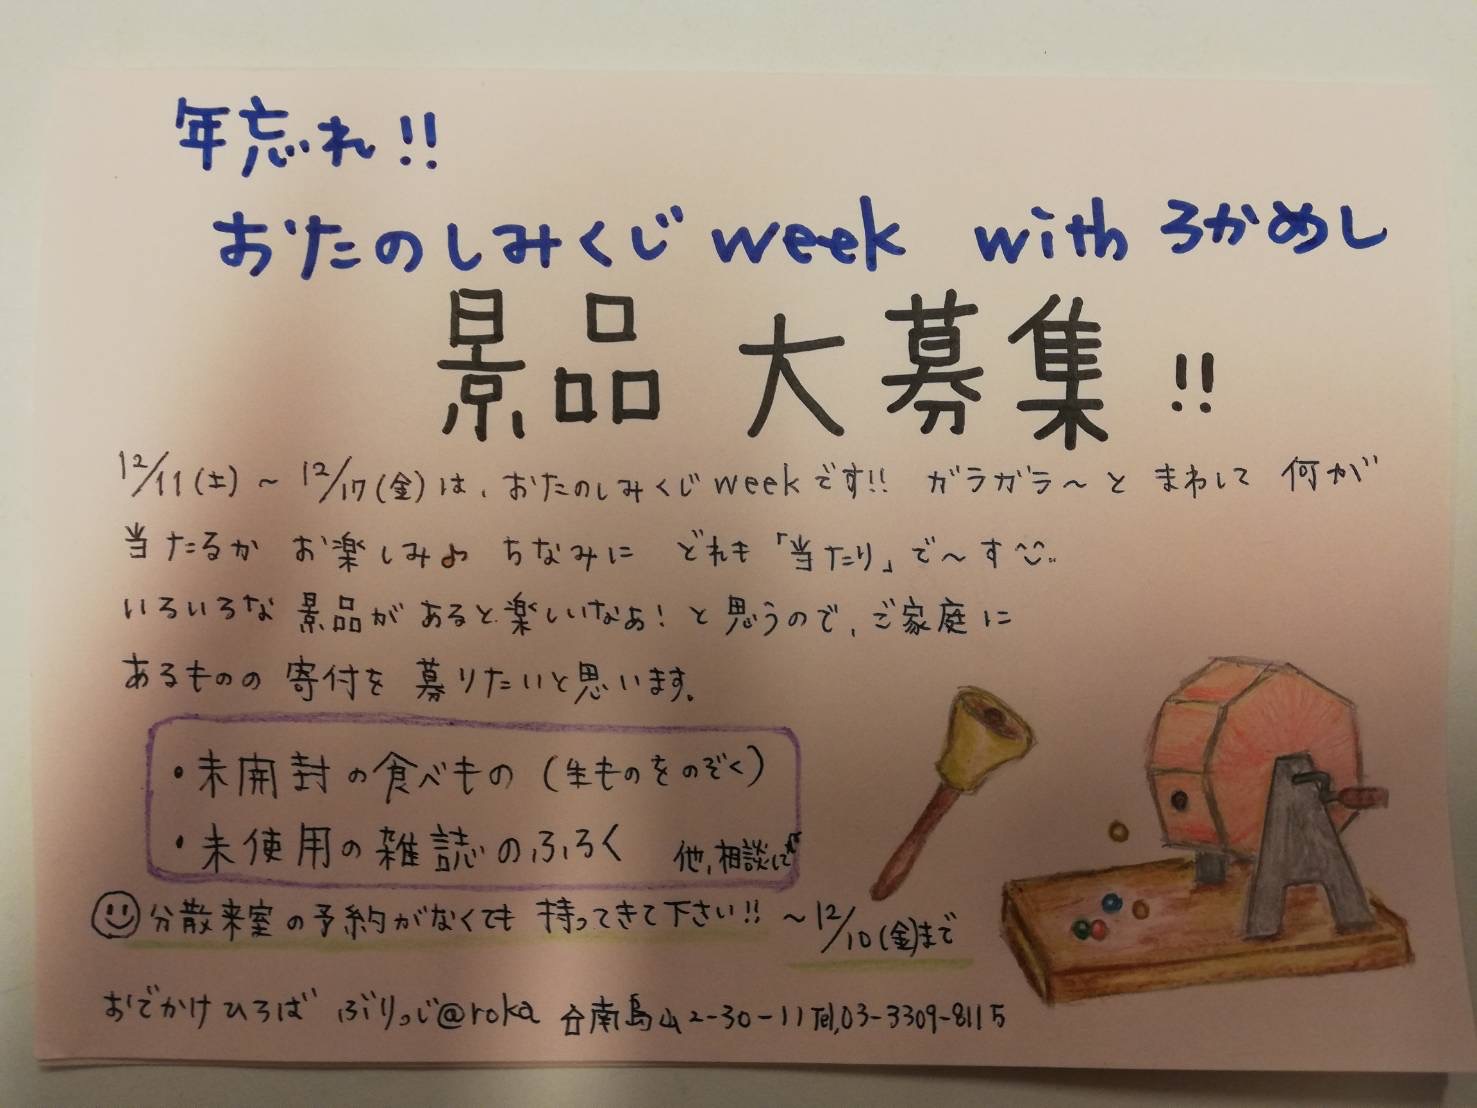 年忘れ!!
おたのしみくじ week with ろかめし
景品 大募集!!
12/11(土)〜12/17(金)は、おたのしみくじweekです!! ガラガラ〜とまわして何が
当たるか お楽しみ♪ ちなみに どれも「当たり」で〜す
いろいろな 景品が あると楽しいなあ! と思うので、ご家庭に
あるものの 寄付を 募りたいと思います。
・未開封の食べもの (生ものをのぞく)
・未使用の雑誌のふろく 他,相談にて
分散来室の予約がなくても 持ってきて下さい!! 〜12/10(金)まで
おでかけひろば ぶりっじ@roka 南烏山2-30-11 Tel,03-3309-8115